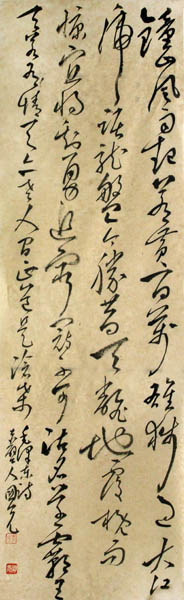 鍾山風雨起蒼黄百萬雄師過大江
虎踞龍盤今勝昔天翻地覆慨而
慷宜將剩勇追窮寇不可沽名學霸王
天若有情天亦老人間正道是滄桑
毛澤東詩